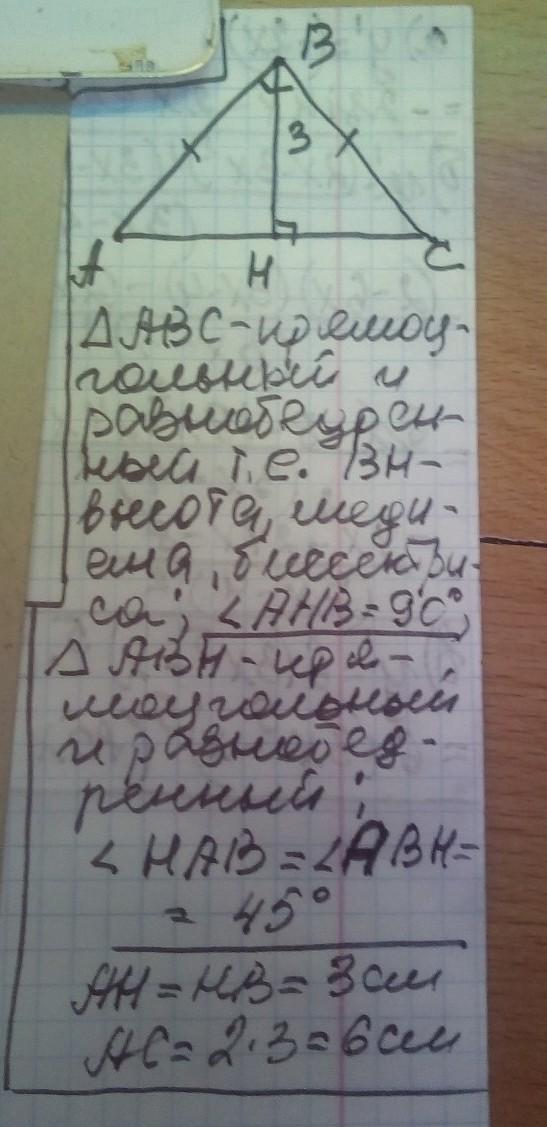 B
3
A
H
C
△ABC-прямоу-
гольный и
равнобедрен-
ный т.е. BH-
высота, меди-
ана, биссектри-
са; ∠AHB = 90°;
△ABH-пря-
моугольный
и равнобед-
ренный;
∠HAB = ∠ABH =
= 45°
AH = HB = 3см
AC = 2·3 = 6см